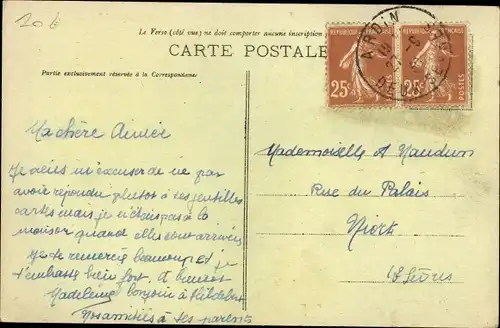 20 f
Le Verso (côté vue) ne doit comporter aucune inscription
CARTE POSTALE
Partie exclusivement réservée à la Correspondance.
ARDIN
25c
25c
POSTES
Ma chère Andrée
Je viens m'excuser de ne pas
avoir répondu plutot à tes gentilles
cartes mais je n'étais pas à la
maison quand elles sont arrivées
Je te remercie beaucoup et je
t'embrasse bien fort. A bientôt
Madeleine bonjour à
Nos amitiés à tes parents
Mademoiselle A Naudun
Rue du Palais
Niort
D Sèvres